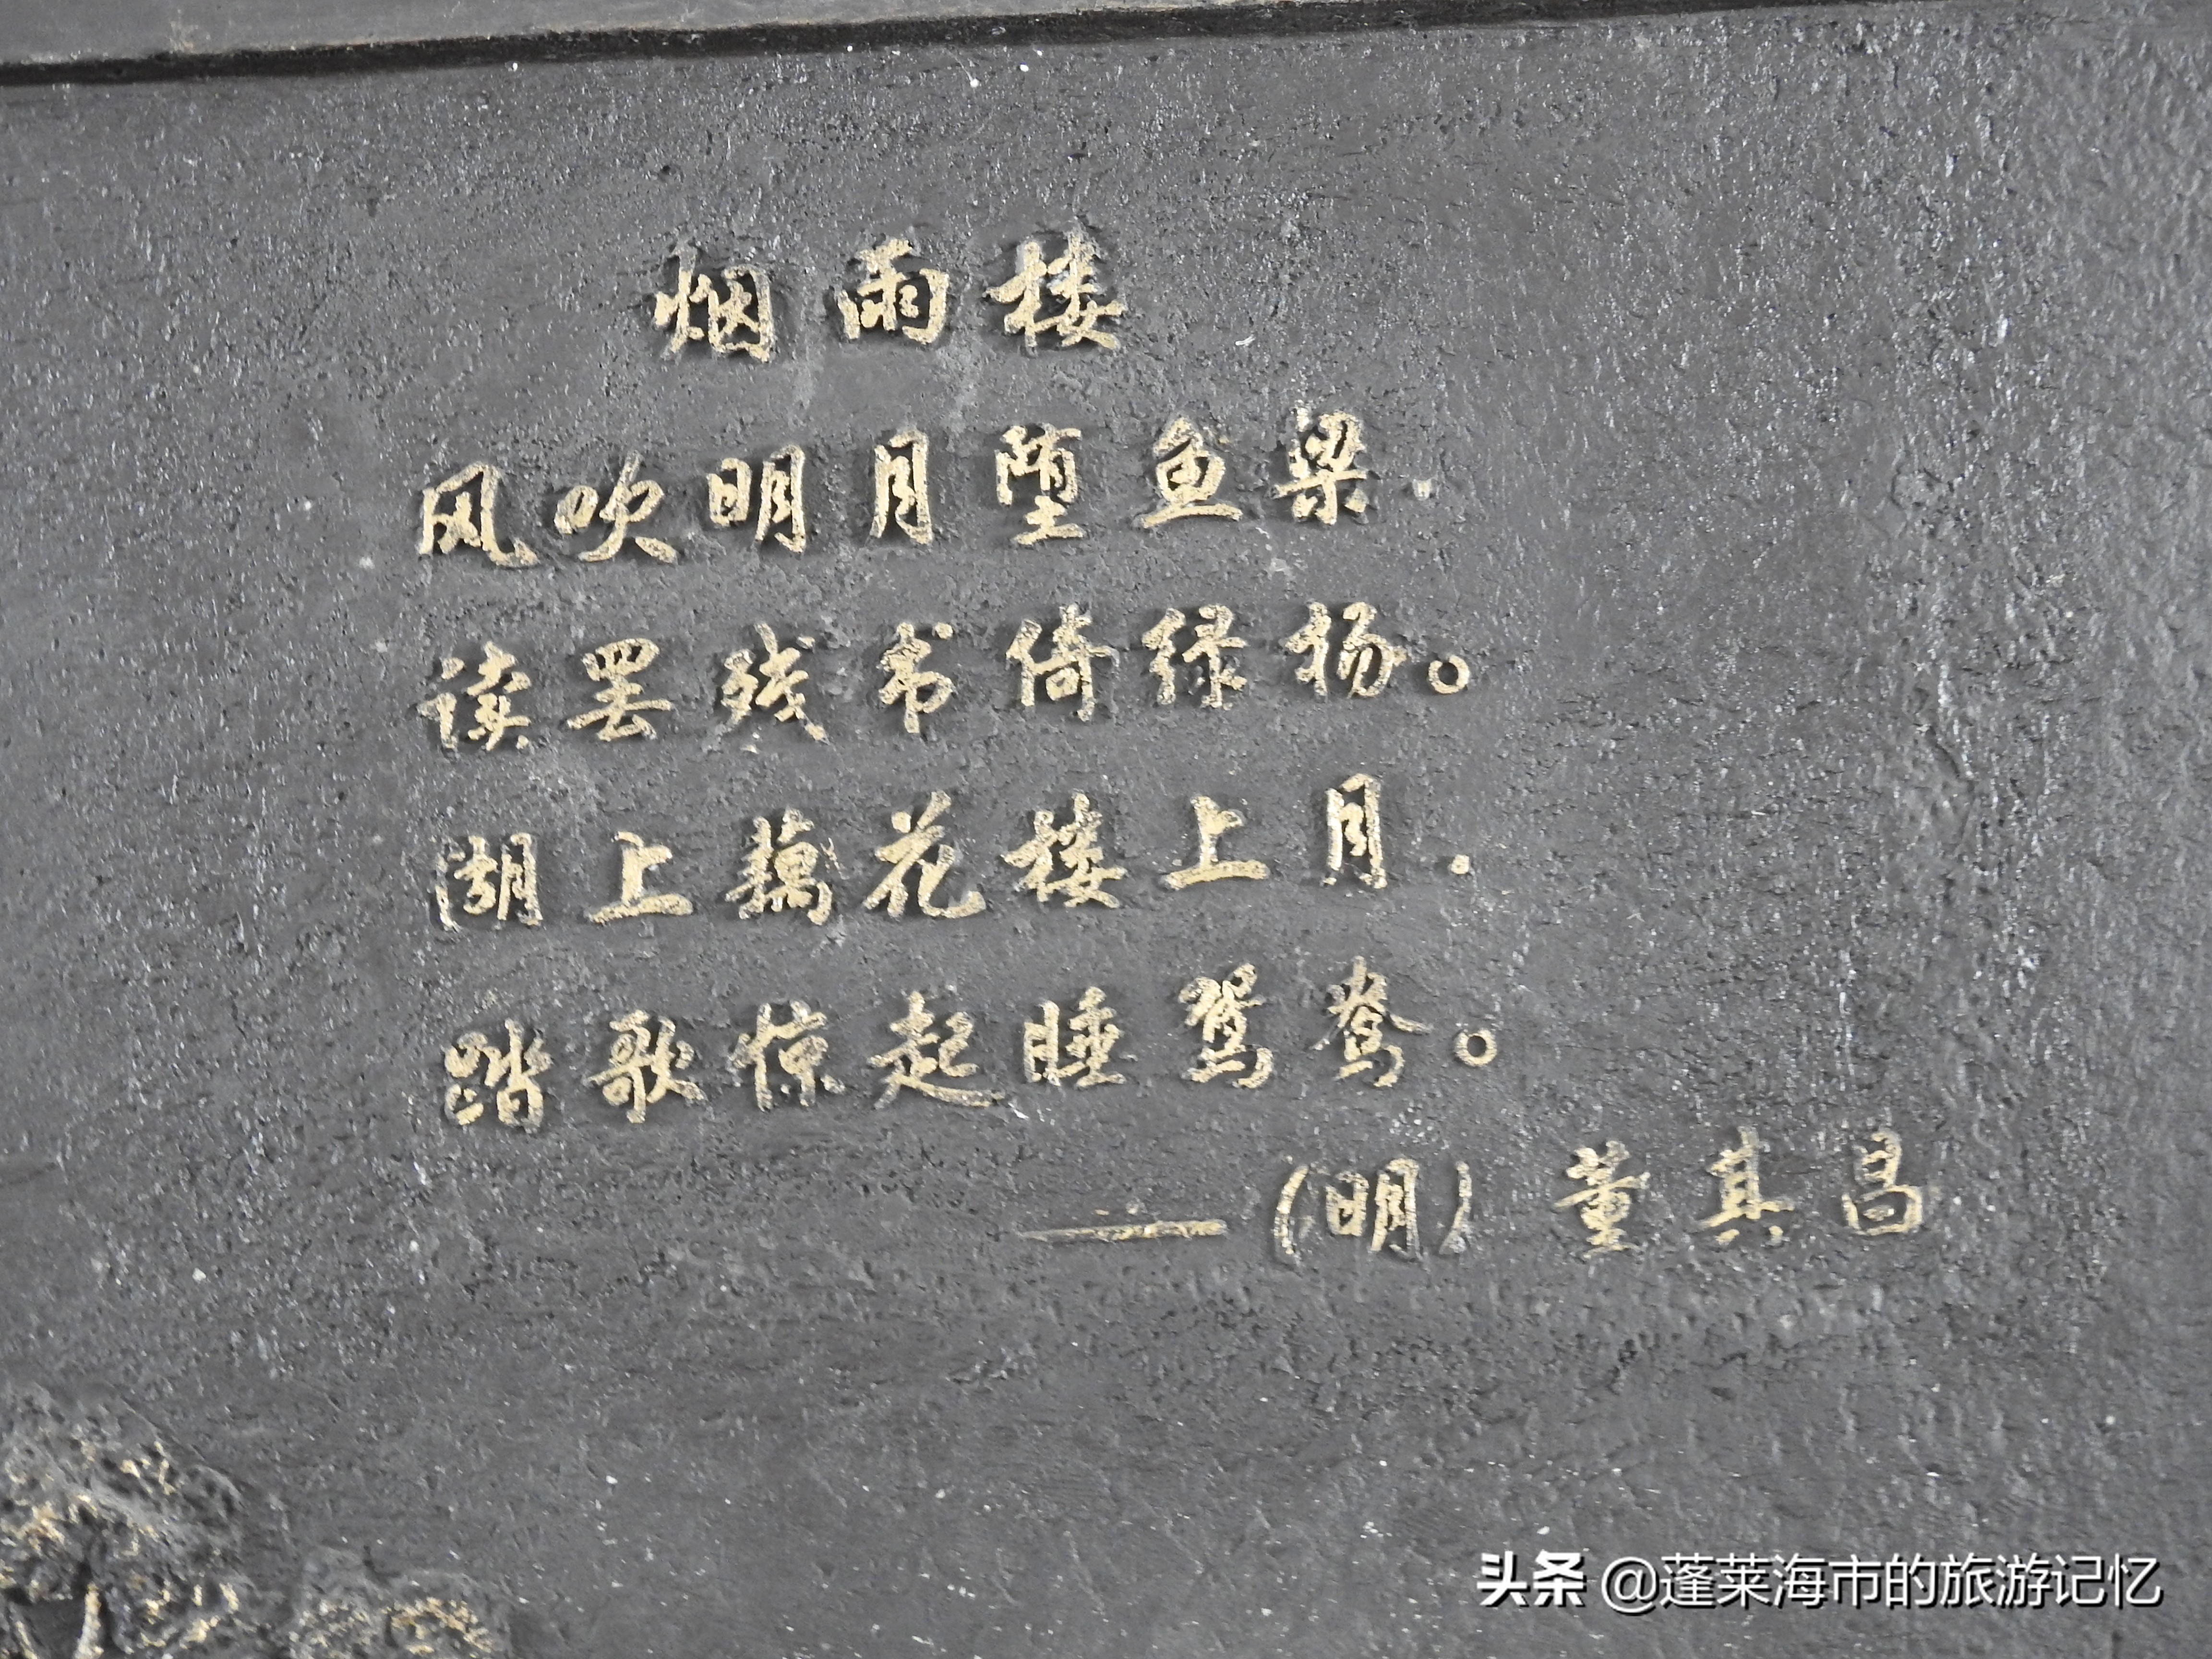 烟雨楼
风吹明月堕鱼梁.
读罢残书倚绿杨。
湖上藕花楼上月.
踏歌惊起睡鸳鸯。
——(明)董其昌
头条 @蓬莱海市的旅游记忆